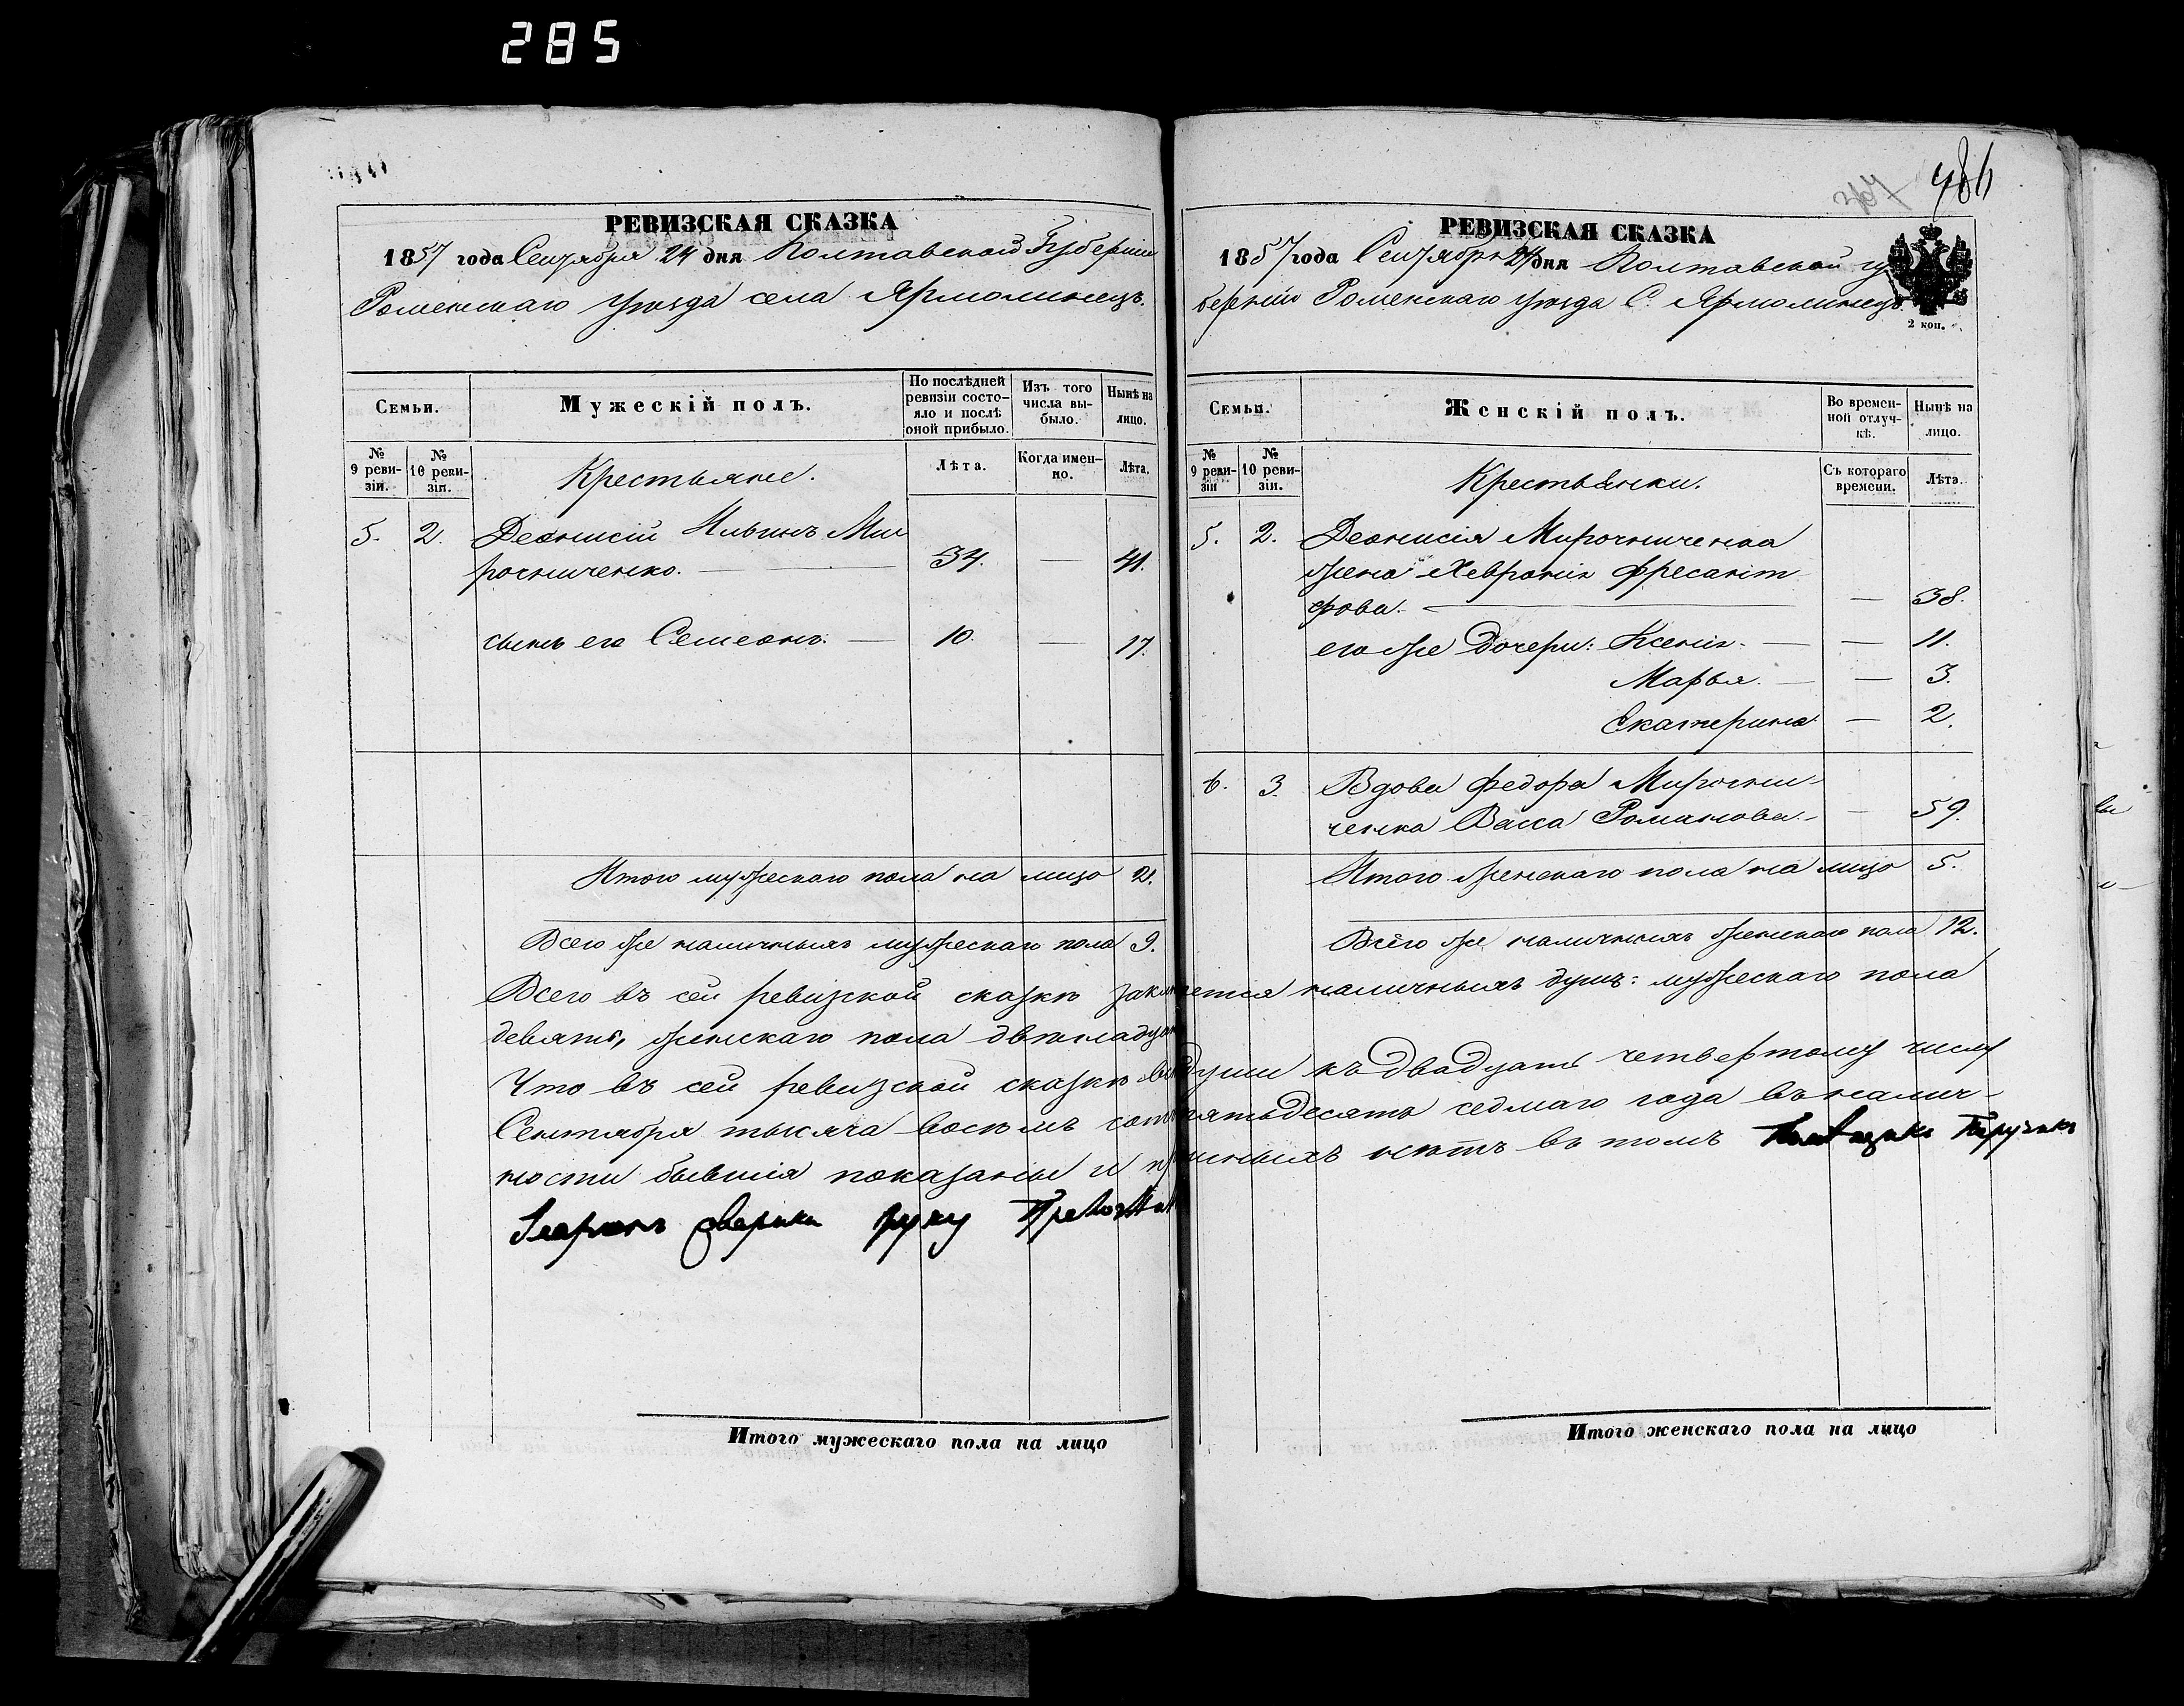 285
486
РЕВИЗСКАЯ СКАЗКА
1857 года Сентября 24 дня Полтавской Губернии
Роменскаго уѣзда села Ярмолинецъ.
Семьи.
Мужескій полъ.
По послѣдней ревизіи состояло и послѣ оной прибыло.
Изъ того числа выбыло.
Нынѣ на лицо.
№ 9 ревизіи.
№ 10 ревизіи.
Крестьяне.
Лѣта.
Когда именно.
Лѣта.
5. 2. Деонисій Ильинъ Ми
рошниченко. — 34. — 41.
сынъ его Семеонъ. — 10. — 17.
Итого мужескаго пола на лицо 2.
Всего же наличныхъ мужескаго пола 9.
РЕВИЗСКАЯ СКАЗКА
1857 года Сентября 24 дня Полтавской гу
берніи Роменскаго уѣзда С. Ярмолинецъ
2 коп.
Семьи.
Женскій полъ.
Во временной отлучкѣ.
Нынѣ на лицо.
№ 9 ревизіи
№ 10 ревизіи.
Крестьянки.
Съ котораго времени.
Лѣта.
5. 2. Деонисія Мирошниченка
жена Хевронія
— 38.
его же Дочери: Ксенія. — — 11.
Марья. — — 3.
Екатерина — 2.
6. 3. Вдова Федора Мирошни-
ченка Васса Романова. — 59.
Итого женскаго пола на лицо 5.
Всего же наличныхъ женскаго пола 12.
Всего въ сей ревизской сказкѣ наличныхъ душъ: мужескаго пола
девять, женскаго пола двѣнадцать
Что въ сей ревизской сказкѣ всѣ души къ двадцать четвертому числу
Сентября тысяча восемь сотъ пятьдесятъ седмаго года въ налич-
ности бывшія показаны и нѣтъ въ томъ
руку
Итого мужескаго пола на лицо
Итого женскаго пола на лицо